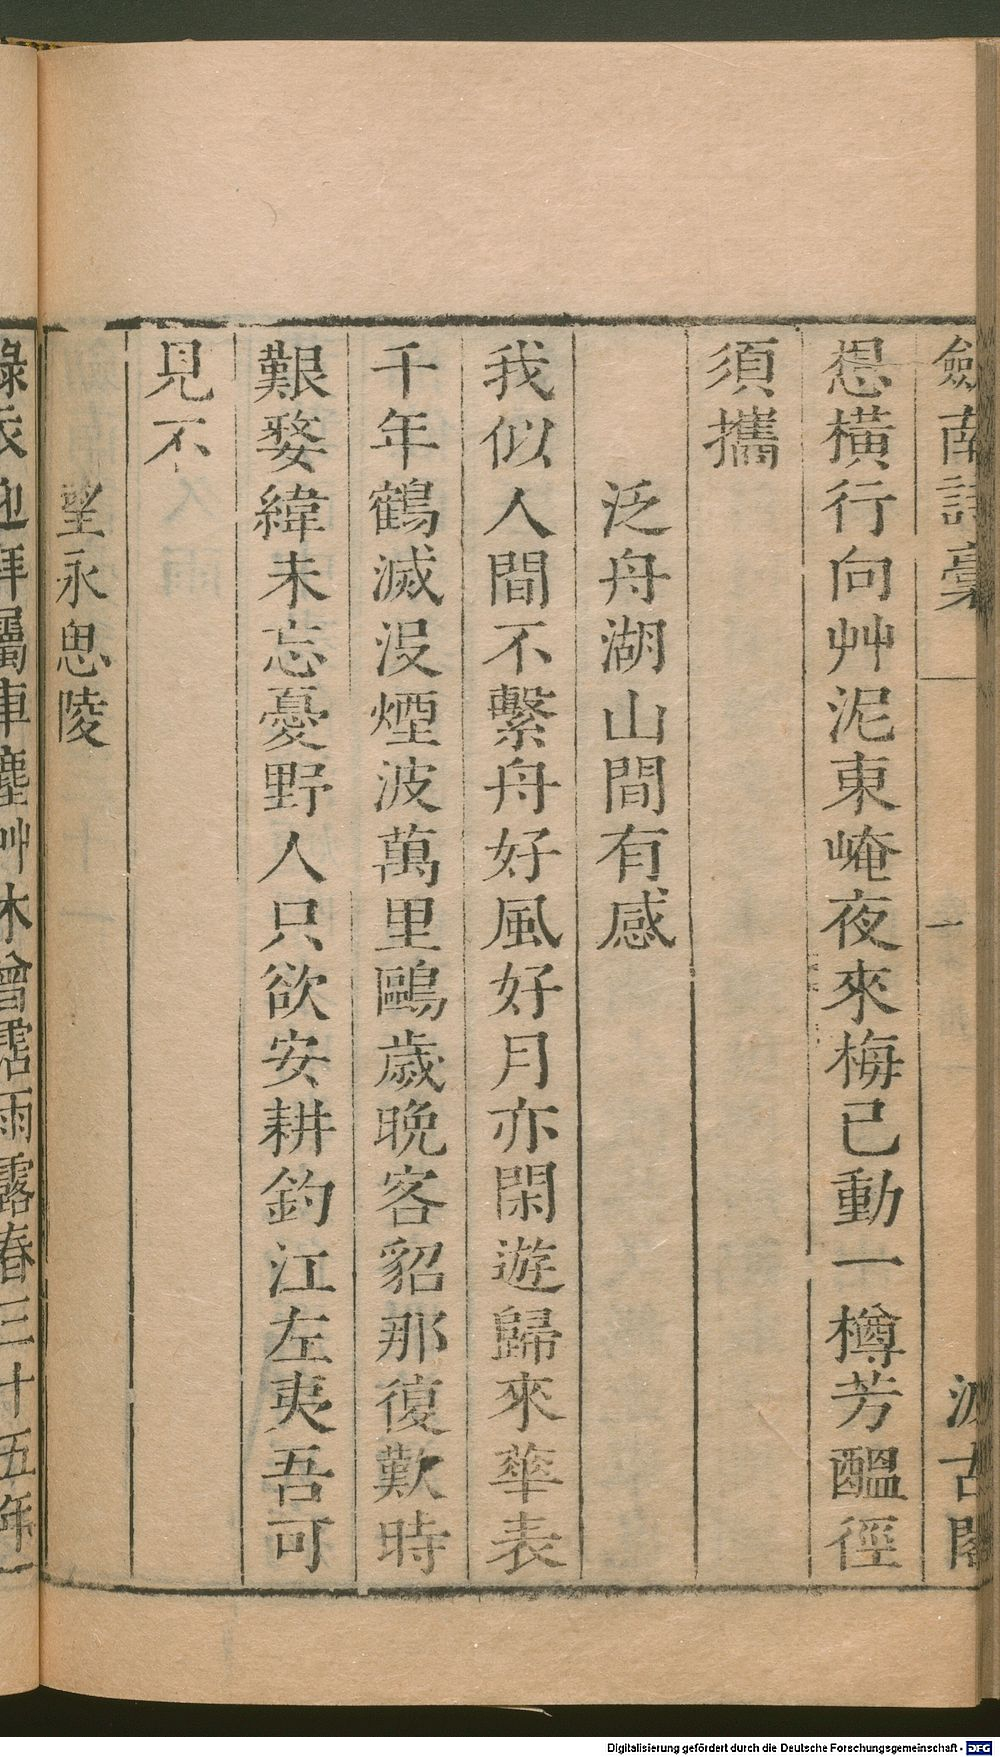 劔南詩稾
一
汲古閣
想橫行向艸泥東崦夜來梅已動一樽芳醞徑
須攜
泛舟湖山間有感
我似人間不繫舟好風好月亦閑遊歸來華表
千年鶴滅没煙波萬里鷗歲晚客貂那復歎時
艱婺緯未忘憂野人只欲安耕釣江左夷吾可
見不
望永思陵
綠衣迎拜屬車塵艸木曾霑雨露春三十五年一
Digitalisierung gefördert durch die Deutsche Forschungsgemeinschaft - DFG